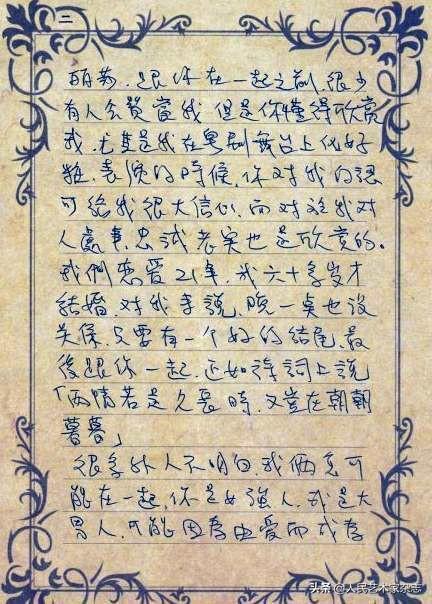 二
丽莎，跟你在一起之前，很少
有人会赞赏我，但是你懂得欣赏
我，尤其是我在粤剧舞台上做好
表演的時候，你对我的認
可给我很大信心，而对於我对
人處事，忠诚老实也是欣赏的。
我們恋爱21年，我六十多岁才
结婚，对我来說，晚一点也没
关係，只要有一个好的结尾，最
後跟你一起，正如詩詞上說
「两情若是久長時，又豈在朝朝
暮暮」
很多外人不明白，我倆怎可
能在一起，你是女强人，我是大
男人，可能因為由愛而成為
头条@人民艺术家杂志